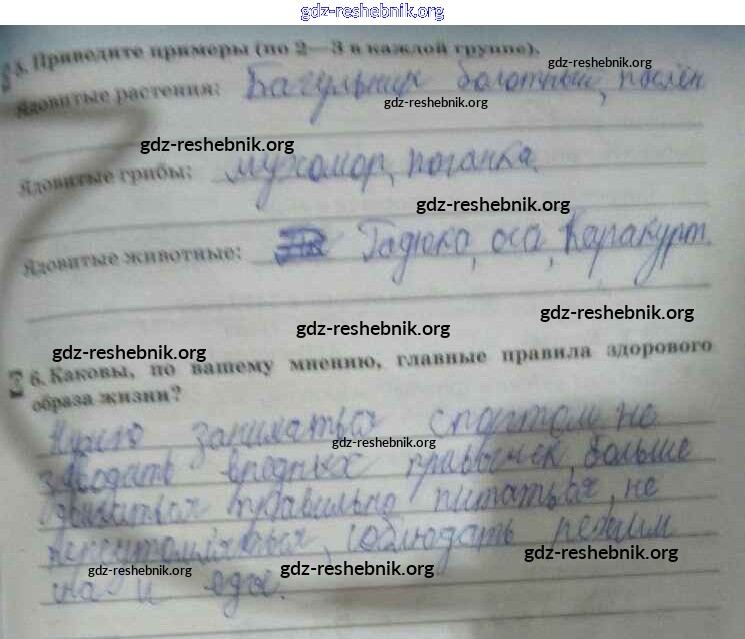 gdz-reshebnik.org
5. Приведите примеры (по 2—3 в каждой группе).
gdz-reshebnik.org
Ядовитые растения: Багульник болотный, паслён
gdz-reshebnik.org
gdz-reshebnik.org
Ядовитые грибы: мухомор, поганка.
gdz-reshebnik.org
Ядовитые животные: Гадюка, оса, Каракурт.
gdz-reshebnik.org
gdz-reshebnik.org
gdz-reshebnik.org
6. Каковы, по вашему мнению, главные правила здорового
образа жизни?
Нужно заниматься спортом, не
gdz-reshebnik.org
заводить вредных привычек, больше
двигаться правильно питаться, не
соблюдать режим
gdz-reshebnik.org
gdz-reshebnik.org
gdz-reshebnik.org
сна и еды.